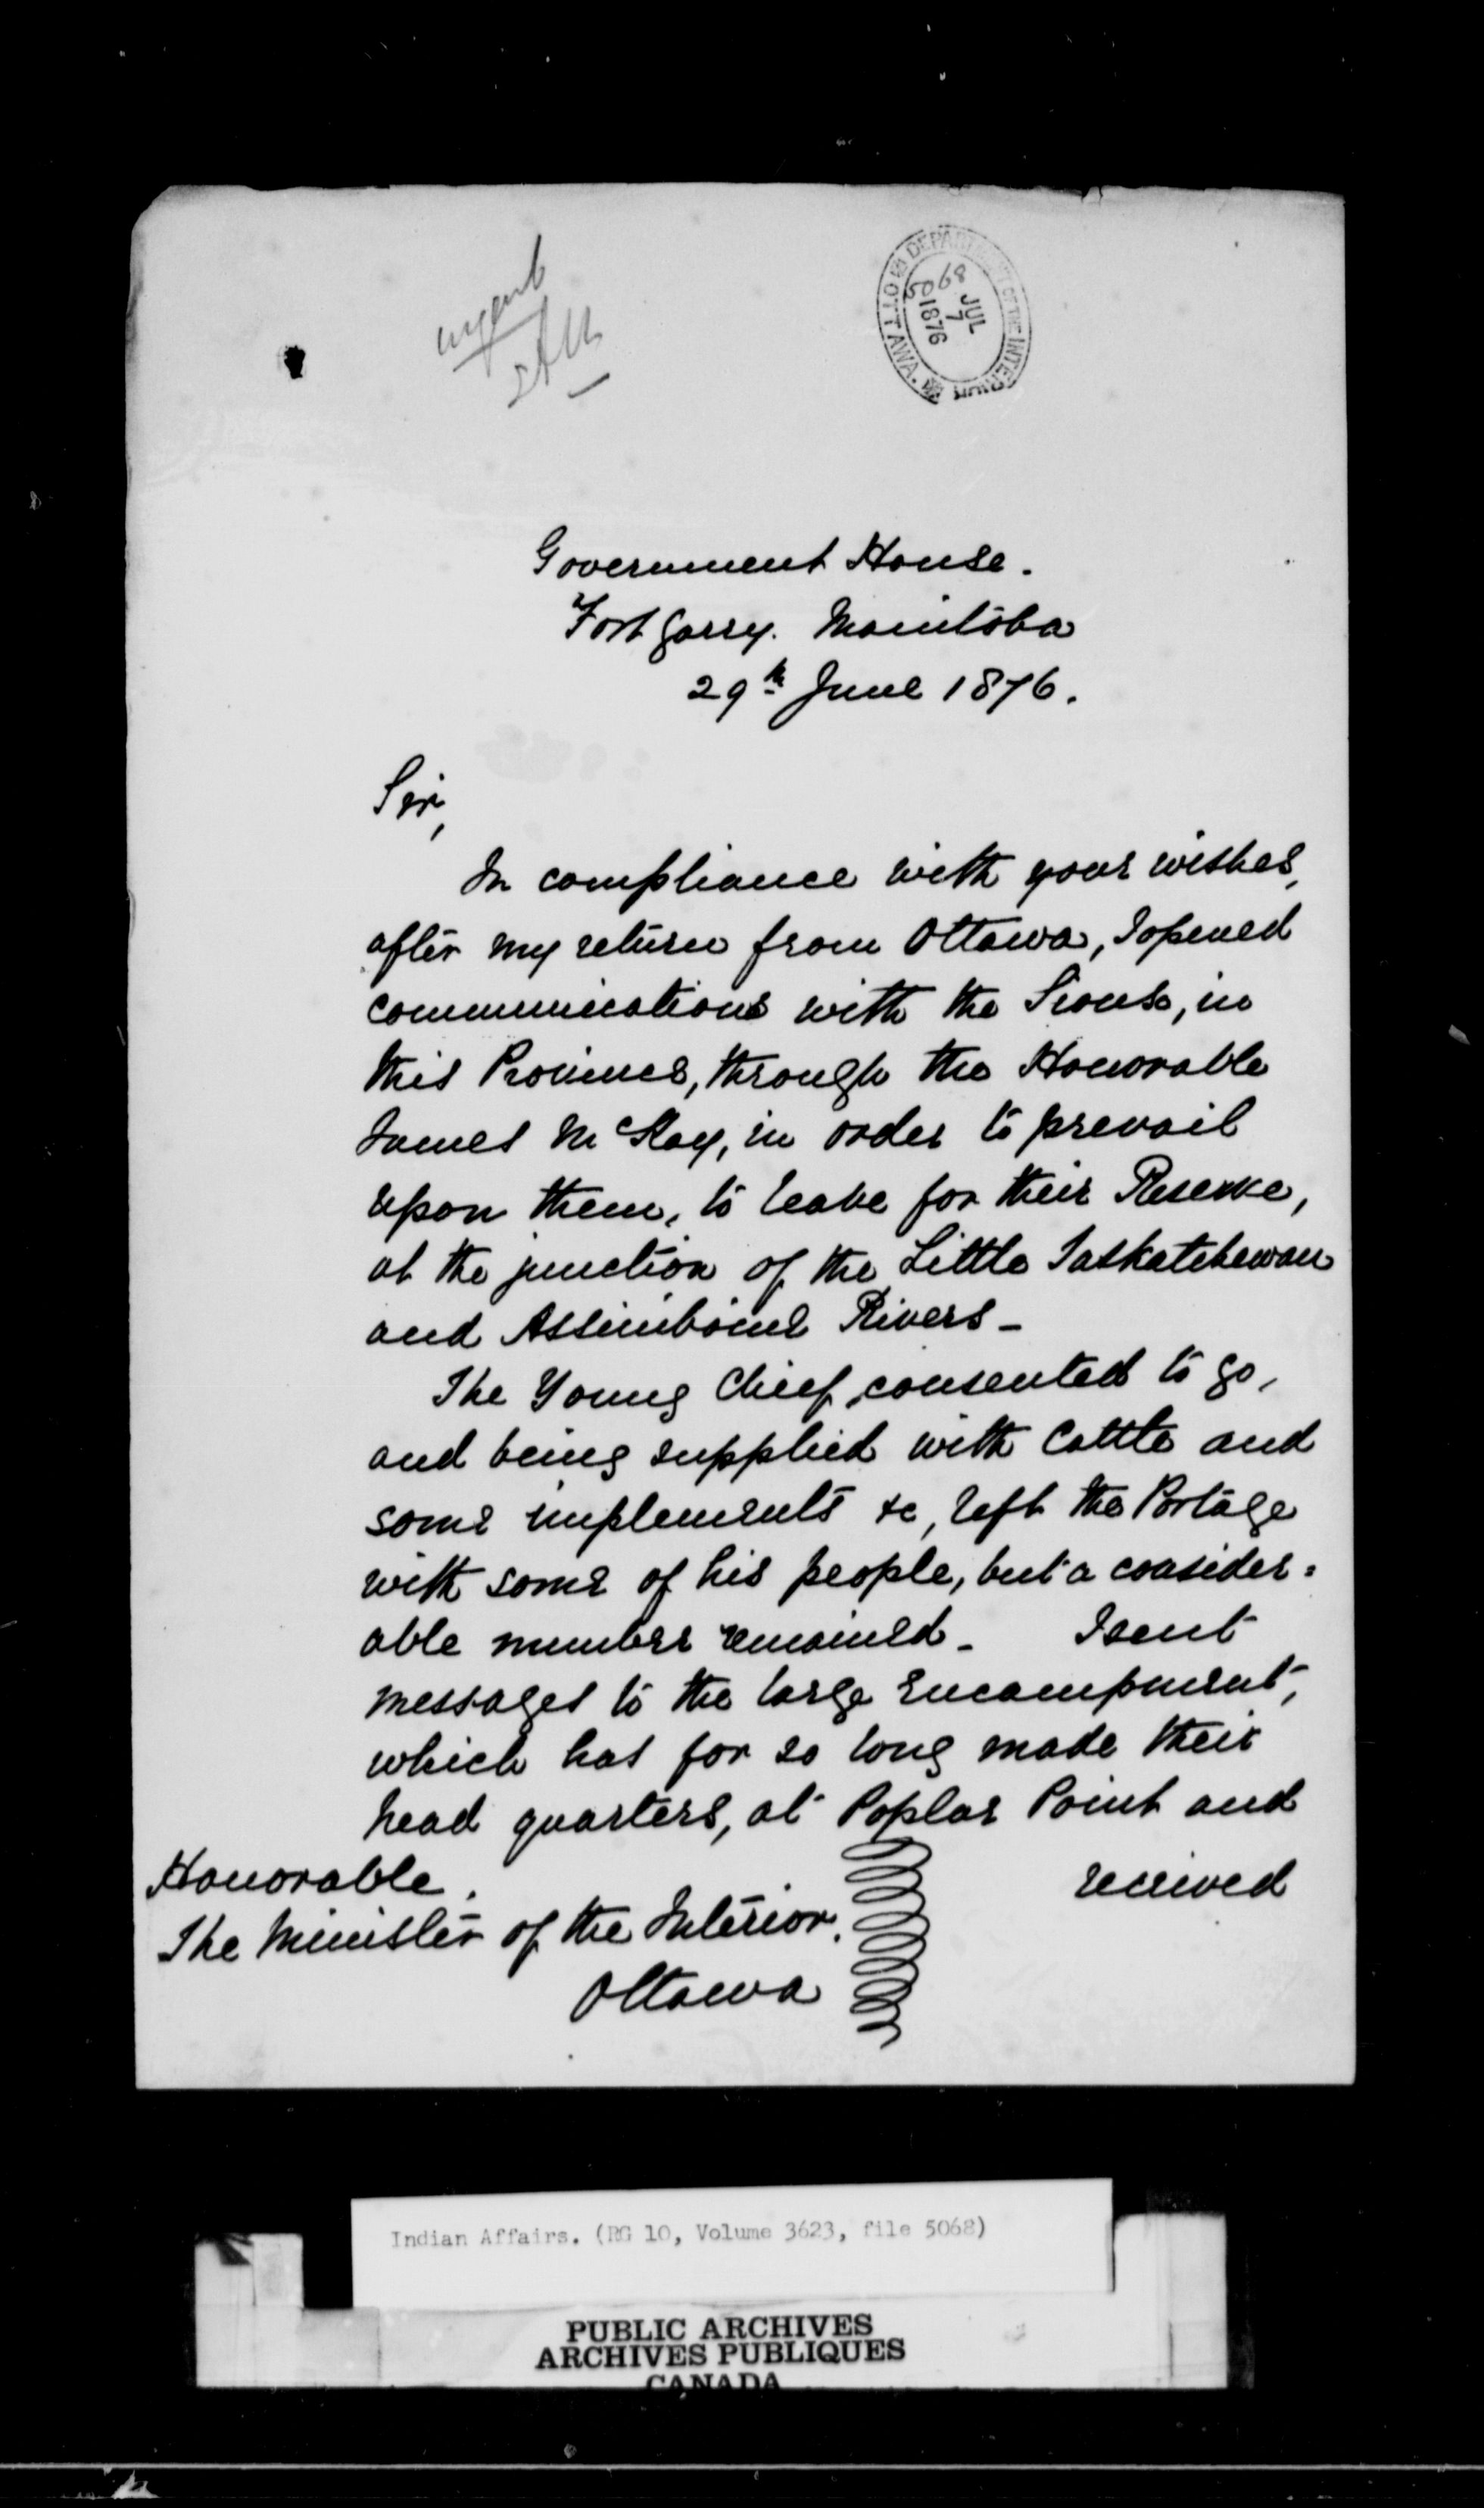 urgent
DEPARTMENT OF THE INTERIOR
OTTAWA.
5068
JUL
7
1876
Government House.
Fort Garry. Manitoba
29th June 1876.
Sir,
In compliance with your wishes,
after my return from Ottawa, I opened
communications with the Sioux, in
this Province, through the Honorable
James McKay, in order to prevail
upon them, to leave for their Reserve,
at the junction of the Little Saskatchewan
and Assiniboine Rivers -
The Young Chief, consented to go,
and being supplied with Cattle and
some implements &c, left the Portage
with some of his people, but a consider=
able number remained - I sent
messages to the large encampment,
which has for so long made their
head quarters, at Poplar Point and
received
Honorable,
The Minister of the Interior.
Ottawa
Indian Affairs. (RG 10, Volume 3623, file 5068)
PUBLIC ARCHIVES
ARCHIVES PUBLIQUES
CANADA